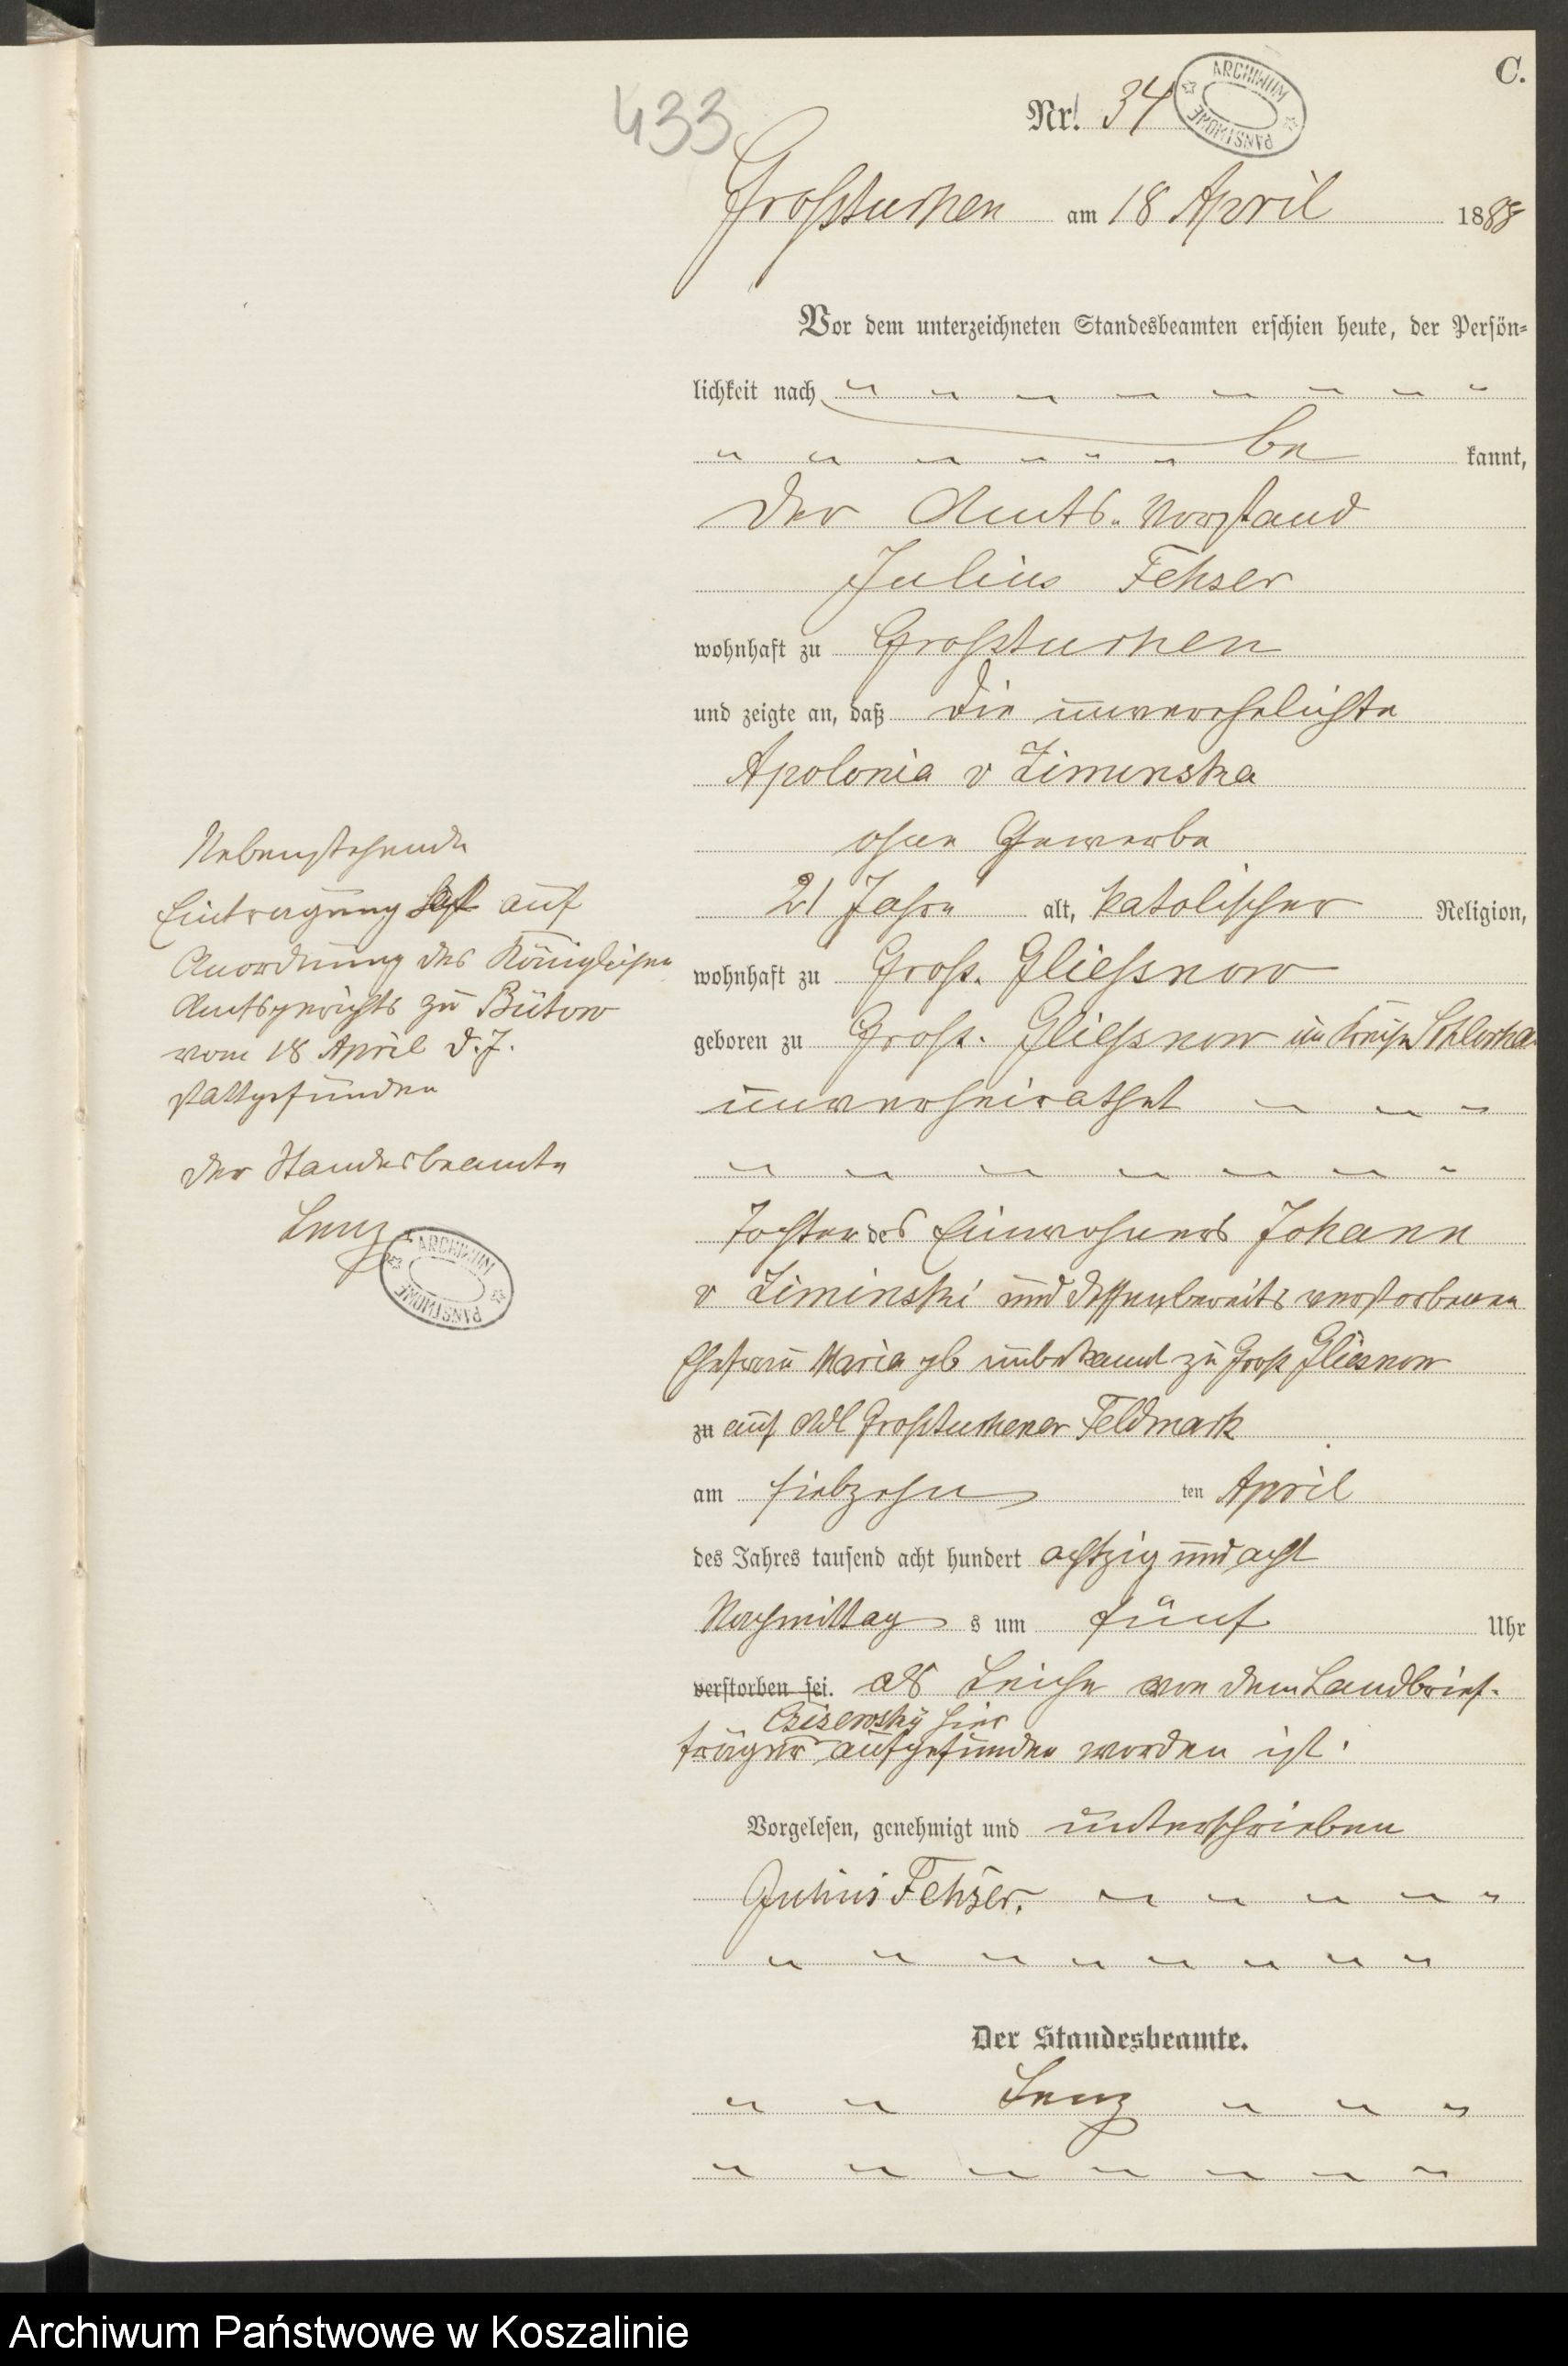 C.
433
Nr. 34
ARCHIWUM PAŃSTWOWE
Großtuchen am 18 April 1888
Vor dem unterzeichneten Standesbeamten erschien heute, der Persön-
lichkeit nach
be kannt,
der Amts-Vorstand
Julius Fehser
wohnhaft zu Großtuchen
und zeigte an, daß die unverehelichte
Apolonia v
ohne Gewerbe
21 Jahre alt, katolischer Religion,
wohnhaft zu Groß. Gliessnow
geboren zu Groß. Gliessnow im Kreise
unverheirathet
Tochter des Einwohners Johann
v Ziminski und dessen bereits verstorbenen
Ehefrau Maria gb unbekannt zu Groß Gliesnow
zu auf Adl Großtuchener Feldmark
am siebzehn ten April
des Jahres tausend acht hundert achtzig und acht
Nachmittag s um fünf Uhr
verstorben sei. als Leiche von dem Landbrief-
hier
träger aufgefunden worden ist.
Vorgelesen, genehmigt und unterschrieben
Julius Fehser.
Der Standesbeamte.
Lenz
Nebenstehende
Eintragung hat auf
Anordnung des Königlichen
Amtsgerichts zu Bütow
vom 18 April d. J.
stattgefunden
der Standesbeamte
Lenz
ARCHIWUM PAŃSTWOWE
Archiwum Państwowe w Koszalinie